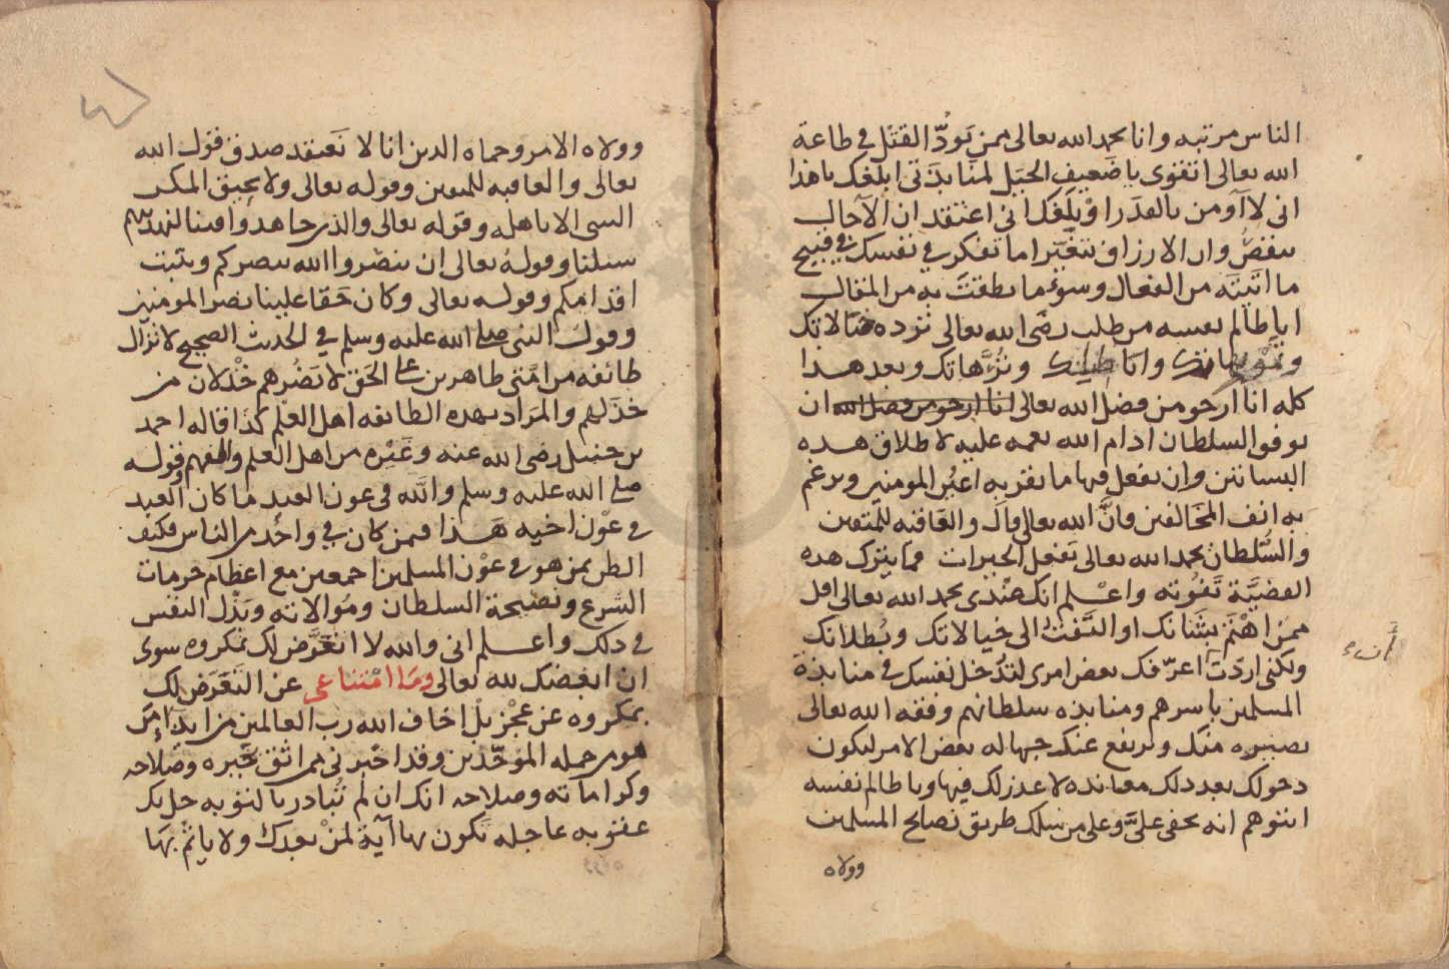 الناس مرتبه وانا بحمد الله تعالى ممن يَودُّ القتل في طاعة
الله تعالى اتقوى يا ضعيف الحيل لمنابذتى ابلغك يا هذا
انى لا اومن بالقدر او بلغك انى اعتقد ان الآجال
تنقص وان الارزاق تتغير اما تفكر في نفسك في قبيح
ما اتيته من الفعال وسوء ما نطقت به من المقال
ايا ظالم نفسه من طلب رضى الله تعالى تزده خيالاتك
وتمويهاتك واباطيلك وتُرَّهاتك وبعد هذا
كله انا ارجو من فضل الله تعالى انا ارجو من فضل الله ان
يوفق السلطان ادام الله نعمه عليه لاطلاق هده
البساتين وان يفعل فيها ما تقر به اعين المومنين ويرغم
به انف المخالفين فان الله تعالى قال والعاقبه للمتقين
والسلطان بحمد الله تعالى يفعل الخيرات فما يترك هده
القضيَّة تَفُوته واعلم انك عندى بحمد الله تعالى اقل
ممن اهتم بشانك او التفت الى خيالاتك وبُطلانك
ولكنى اردت اعرّفك بعض امرى لتدخل نفسك في منابذة
المسلمين باسرهم ومنابذه سلطانهم وفقه الله تعالى
بصيره منك وترتفع عنك جهاله بعض الامر ليكون
دخولك بعد دلك معانده لا عذر لك فيها ويا ظالم نفسه
اتتوهم انه يخفى علىَّ وعلى من سلك طريق نصايح المسلمين
وولاه
وولاه الامر وحماه الدين انا لا نعتقد صدق قول الله
تعالى والعاقبه للمتقين وقوله تعالى ولا يحيق المكر
السى الا باهله وقوله تعالى والذين جاهدوا فينا لنهدينهم
سبلنا وقوله تعالى ان تنصروا الله ينصركم ويثبت
اقدامكم وقوله تعالى وكان حقا علينا نصر المومنين
وقول النبي صلى الله عليه وسلم في الحديث الصحيح لا تزال
طائفه من امتى ظاهرين على الحق لا يضرهم خذلان من
خذلهم والمراد بهده الطائفه اهل العلم كذا قاله احمد
بن حنبل رضى الله عنه وغيره من اهل العلم والفهم وقوله
صلى الله عليه وسلم والله فى عون العبد ما كان العبد
في عون اخيه هذا فيمن كان في واحد من الناس فكيف
الظن بمن هو في عون المسلمين اجمعين مع اعظام حرمات
الشرع ونصيحة السلطان وموالاته وبذل النفس
في دلك واعلم انى والله لا اتعرَّض لك بمكروه سوى
ان ابغضك لله تعالى وما امتناعى عن التعرض لك
بمكروه عن عجز بل اخاف الله رب العالمين من ايذا من
هو من جمله الموحدين وقد اخبرنى من اثق بخبره وصلاحه
وكراماته وصلاحه انك ان لم تبادر بالتوبه حل بك
عقوبه عاجله تكون بها آية لمن بعدك ولا ياثم بها